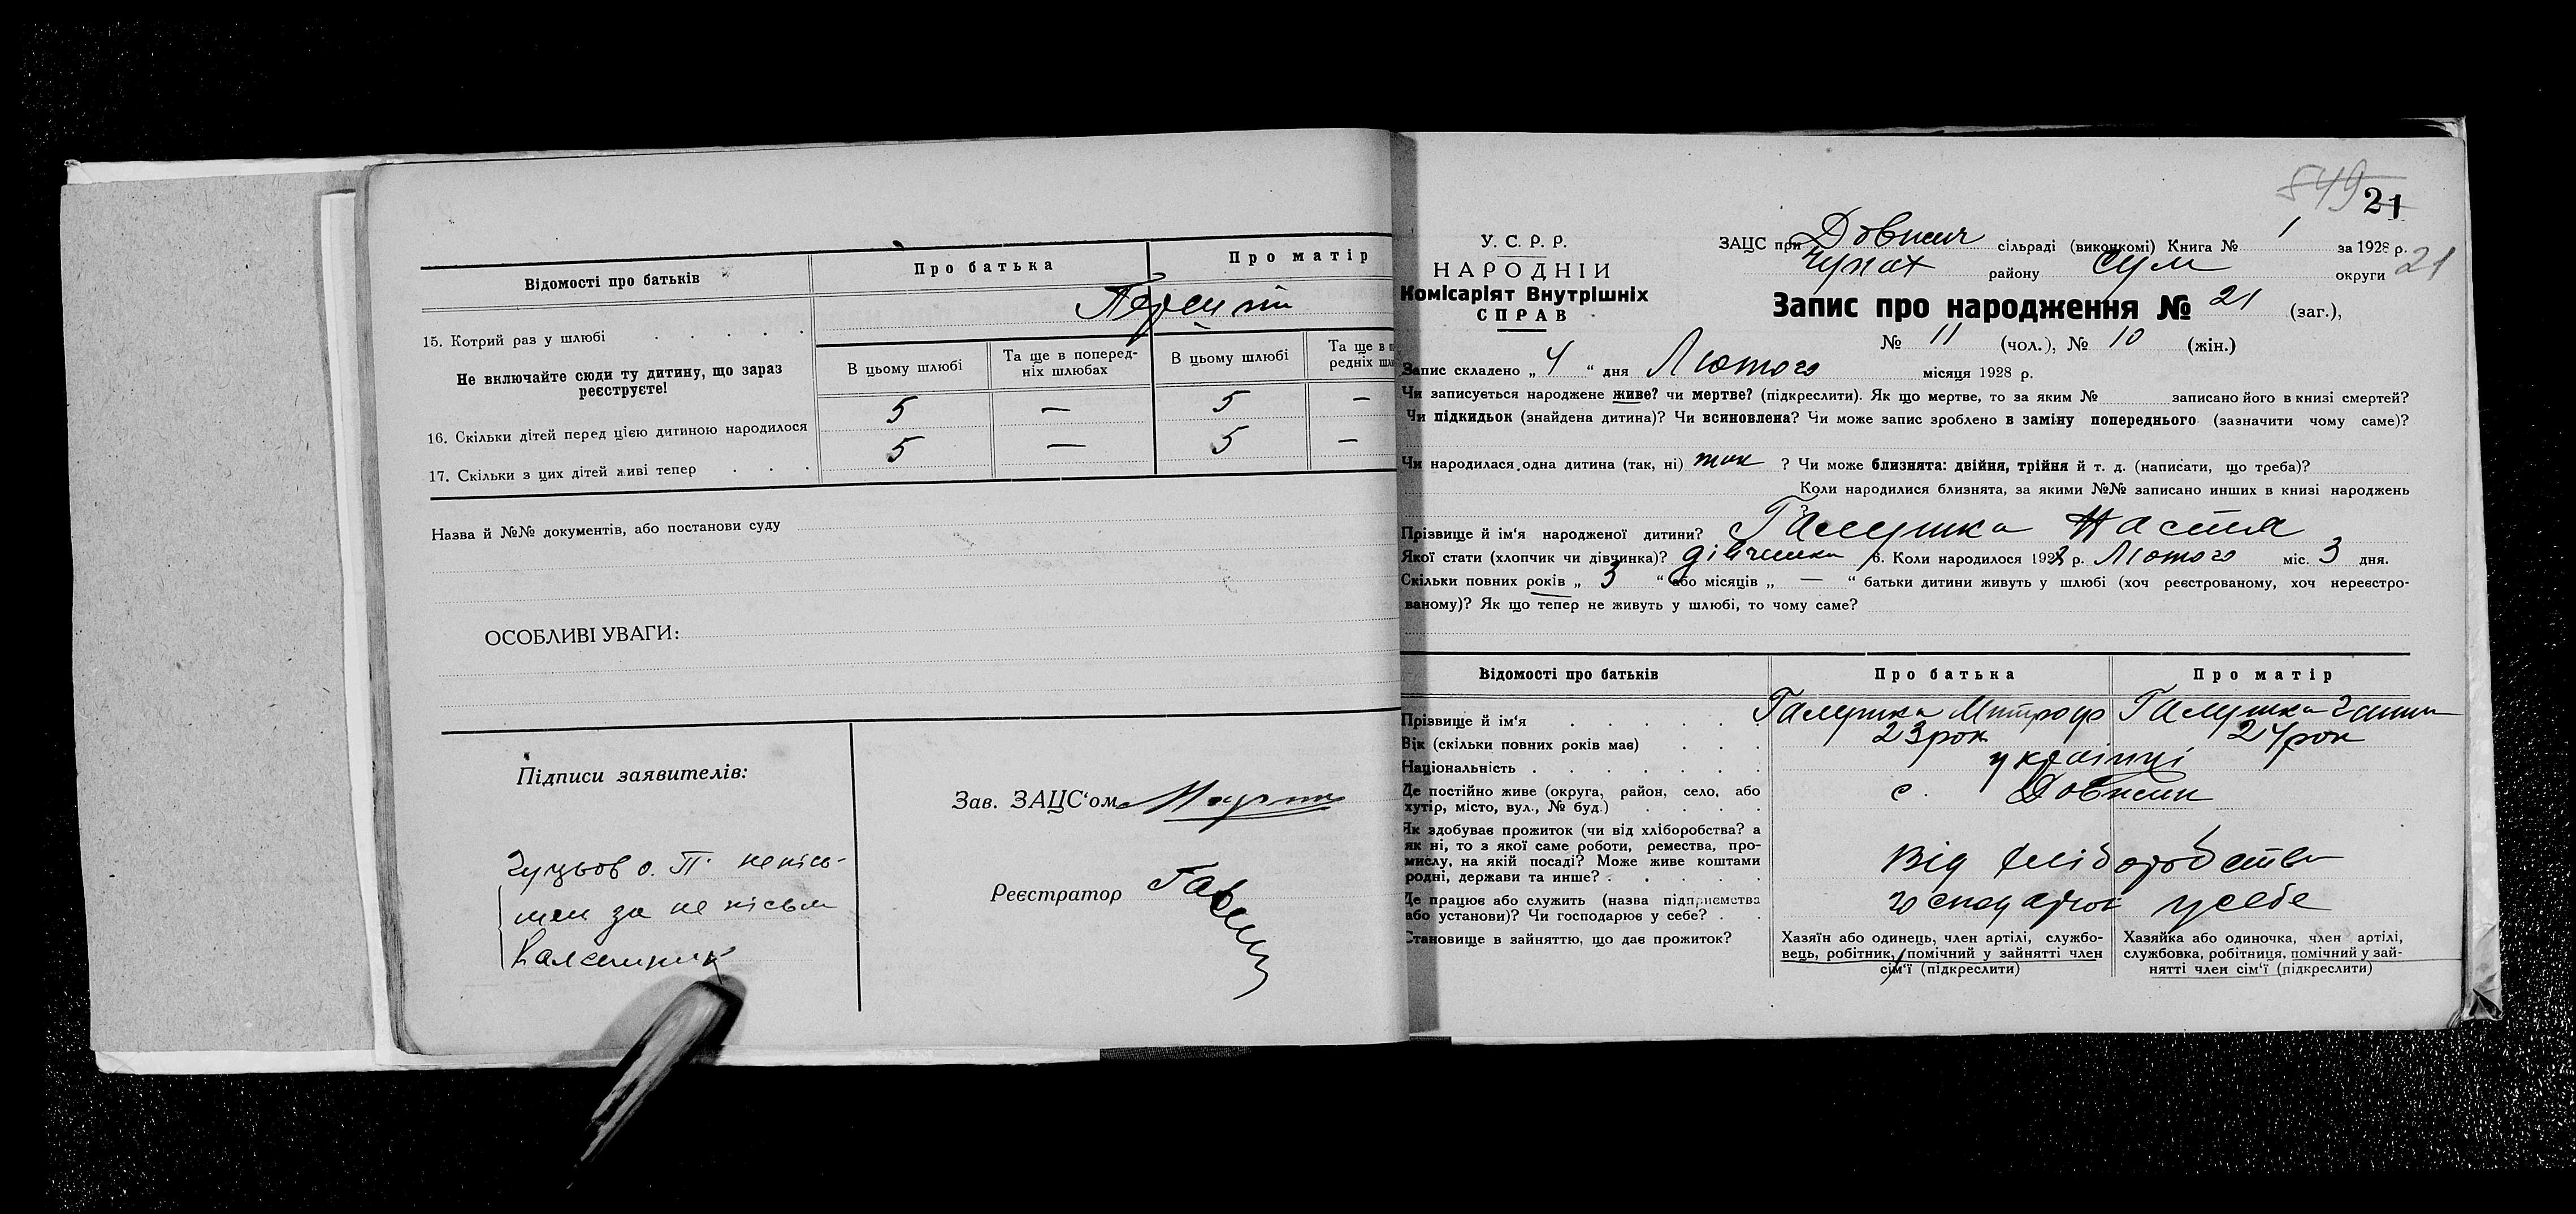 Відомості про батьків
Про батька
Про матір
15. Котрий раз у шлюбі
Не включайте сюди ту дитину, що зараз реєструєте!
В цьому шлюбі
Та ще в поперед-
ніх шлюбах
В цьому шлюбі
16. Скільки дітей перед цією дитиною народилося 5 — 5 —
17. Скільки з цих дітей живі тепер 5 — 5 —
Назва й №№ документів, або постанови суду
ОСОБЛИВІ УВАГИ:
Підписи заявителів:
Зав. ЗАЦС'ом
Реєстратор
549 21
У. С. Р. Р.
НАРОДНІЙ
Комісаріят Внутрішніх
СПРАВ
ЗАЦС при сільраді (виконкомі) Книга № 1 за 1928 р.
району Сум округи 21
Запис про народження № 21 (заг.),
№ 11 (чол.), № 10 (жін.)
Запис складено „ 4 “ дня Лютого місяця 1928 р.
Чи записується народжене живе? чи мертве? (підкреслити). Як що мертве, то за яким № записано його в книзі смертей?
Чи підкидьок (знайдена дитина)? Чи всиновлена? Чи може запис зроблено в заміну попереднього (зазначити чому саме)?
Чи народилася одна дитина (так, ні) так ? Чи може близнята: двійня, трійня й т. д. (написати, що треба)?
Коли народилися близнята, за якими №№ записано инших в книзі народжень
Прізвище й ім'я народженої дитини? Галушка Настя
Якої стати (хлопчик чи дівчинка)? дівчинка 6. Коли народилося 1928 р. Лютого міс. 3 дня.
Скільки повних років „ 3 “ або місяців „ — “ батьки дитини живуть у шлюбі (хоч реєстрованому, хоч нереєстро-
ваному)? Як що тепер не живуть у шлюбі, то чому саме?
Відомості про батьків
Про батька
Про матір
Прізвище й ім'я Галушка Митроф Галушка Ганна
Вік (скільки повних років має) 23 рок 24 рок
Національність українці
Де постійно живе (округа, район, село, або
хутір, місто, вул., № буд.) с.
Як здобуває прожиток (чи від хліборобства? а
як ні, то з якої саме роботи, ремества, про-
мислу, на якій посаді? Може живе коштами
родні, держави та инше? Від хліборобства
Де працює або служить (назва підприємства
або установи)? Чи господарює у себе? господарює у себе
Становище в зайняттю, що дає прожиток?
Хазяїн або одинець, член артілі, службо-
вець, робітник, помічний у зайнятті член
сім'ї (підкреслити)
Хазяйка або одиночка, член артілі,
службовка, робітниця, помічний у зай-
нятті член сім'ї (підкреслити)